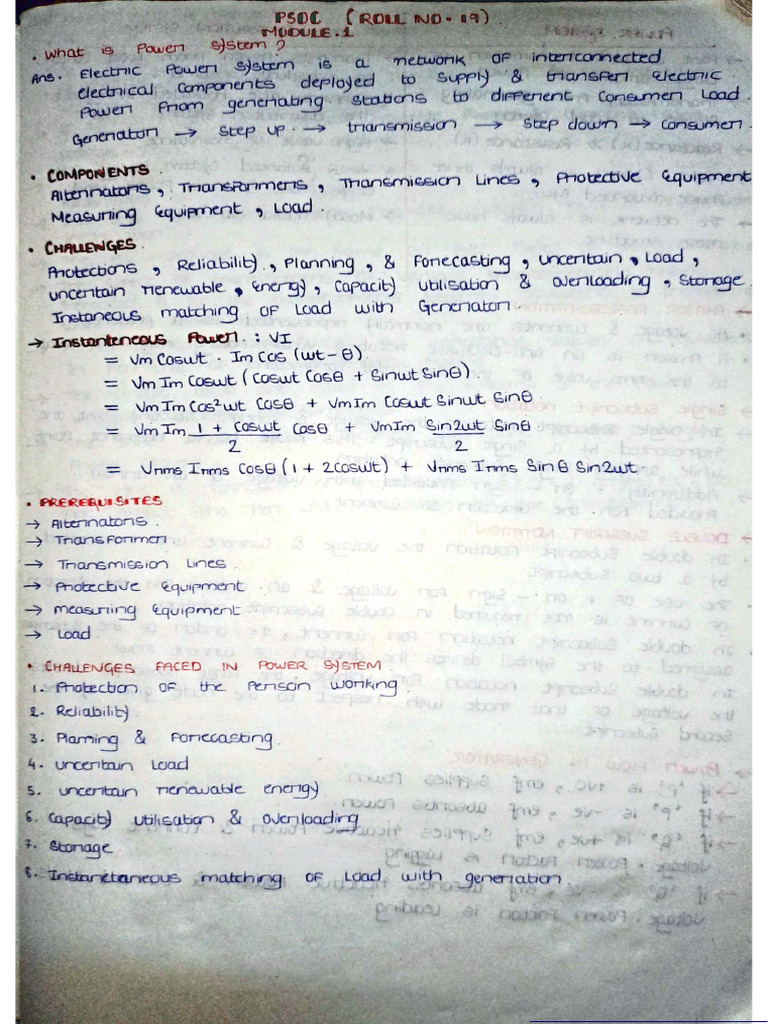 PSOC (ROLL NO. 19)
MODULE.1
• What is Power System?
Ans. Electric Power System is a network of interconnected
electrical components deployed to supply & transfer electric
Power from generating stations to different Consumer Load.
Generator → Step up → transmission → Step down → consumer.
• COMPONENTS.
Alternators, Transformers, Transmission Lines, Protective Equipment
Measuring Equipment, Load.
• CHALLENGES.
Protections, Reliability, Planning, & Forecasting, uncertain, Load,
uncertain renewable, Energy, Capacity utilisation & overloading, Storage
Instaneous matching of Load with Generator.
→ Instanteneous Power: VI
= Vm Coswt . Im Cos (wt - θ).
= Vm Im Coswt (Coswt Cosθ + Sinwt Sinθ).
= Vm Im Cos²wt Cosθ + Vm Im Coswt Sinwt Sinθ.
= Vm Im (1 + Coswt)/2 Cosθ + Vm Im Sin2wt/2 Sinθ.
= Vrms Irms Cosθ (1 + 2coswt) + Vrms Irms Sinθ Sin2wt.
• PREREQUISITES
→ Alternators.
→ Transformer
→ Transmission Lines.
→ Protective Equipment
→ Measuring Equipment
→ Load.
• CHALLENGES FACED IN POWER SYSTEM
1. Protection of the Perison working.
2. Reliability.
3. Planning & Forecasting.
4. uncertain Load
5. uncertain renewable energy.
6. Capacity utilisation & overloading
7. Storage
8. Instanetaneous matching of Load with generation